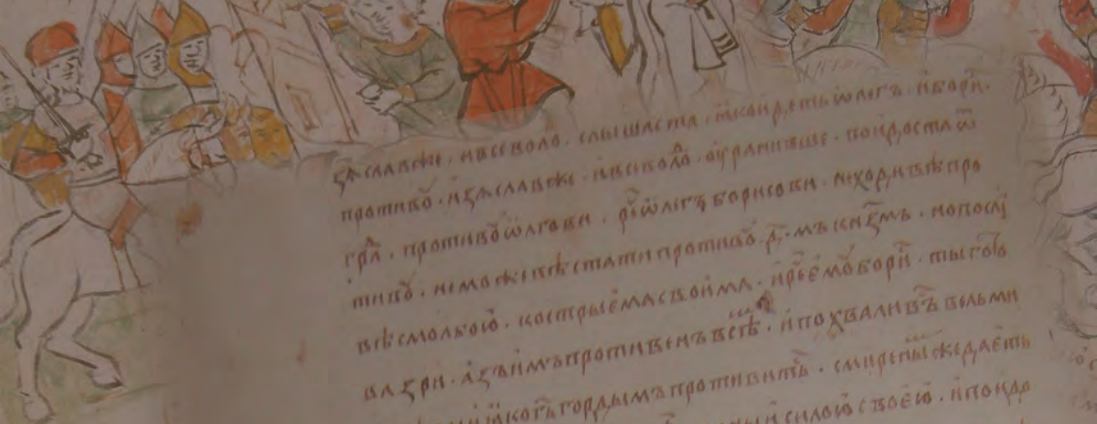 ѕѧславже . ивсеволо . слышаста . ꙗкоидеть ѡлегъ . иборі .
противꙋ . изѧславже . ивсеволо . ѹранивше . поидоста ѿ
гра . противꙋ ѡлгови . рче ѡлегъ борисови . неходивѣ про
тивꙋ . неможевѣ стати противꙋ . д҃ . мъ кнѧземъ . нопослі
вѣ смолбою . кострыема своима . ирече емꙋ бори . ты гото
ва зри . азъ имъ противенъ всѣ . ипохваливъ вельми
ꙗко бгъ гордымъ противить . смирены же даеть
силою своею . ипоидо